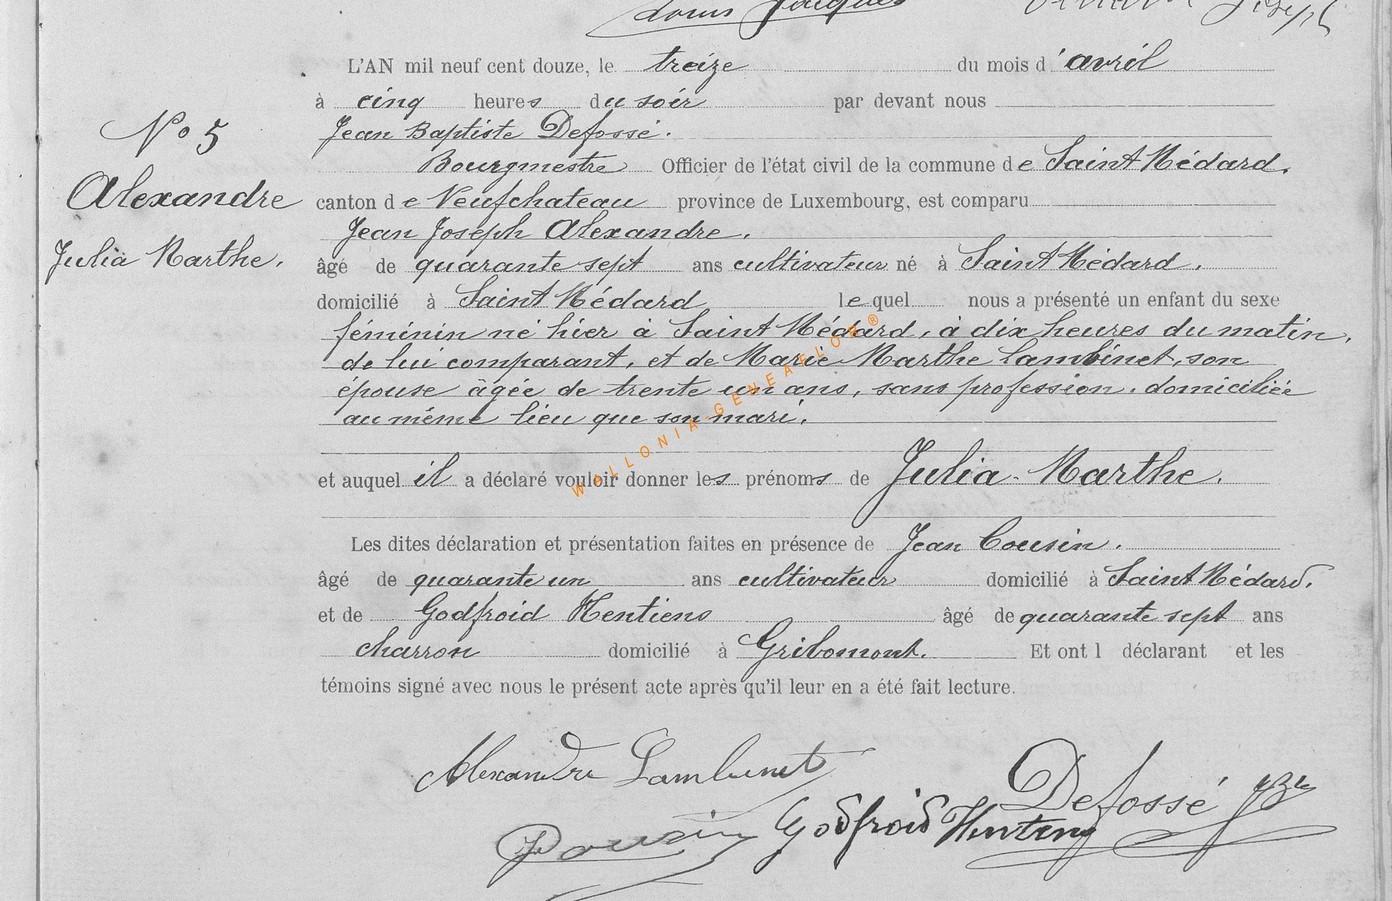 Louis Jacques
L'AN mil neuf cent douze, le treize du mois d'avril
à cinq heures du soir par devant nous
Jean Baptiste Defossé.
Bourgmestre Officier de l'état civil de la commune de Saint Médard.
canton de Neufchateau province de Luxembourg, est comparu
Jean Joseph Alexandre.
âgé de quarante sept ans cultivateur né à Saint Médard.
domicilié à Saint Médard lequel nous a présenté un enfant du sexe
féminin né hier à Saint Médard, à dix heures du matin,
de lui comparant, et de Marie Marthe Lambinet, son
épouse âgée de trente un ans, sans profession, domiciliée
au même lieu que son mari.
et auquel il a déclaré vouloir donner les prénoms de Julia-Marthe.
Les dites déclaration et présentation faites en présence de Jean Cousin.
âgé de quarante un ans cultivateur domicilié à Saint Médard.
et de Godfroid Hentiens âgé de quarante sept ans
charron domicilié à Gribomont. Et ont l déclarant et les
témoins signé avec nous le présent acte après qu'il leur en a été fait lecture.
No 5
Alexandre
Julia Marthe.
Alexandre Lambinet
Defossé
Godfroid
WALLONIA-GENEAFLOR®